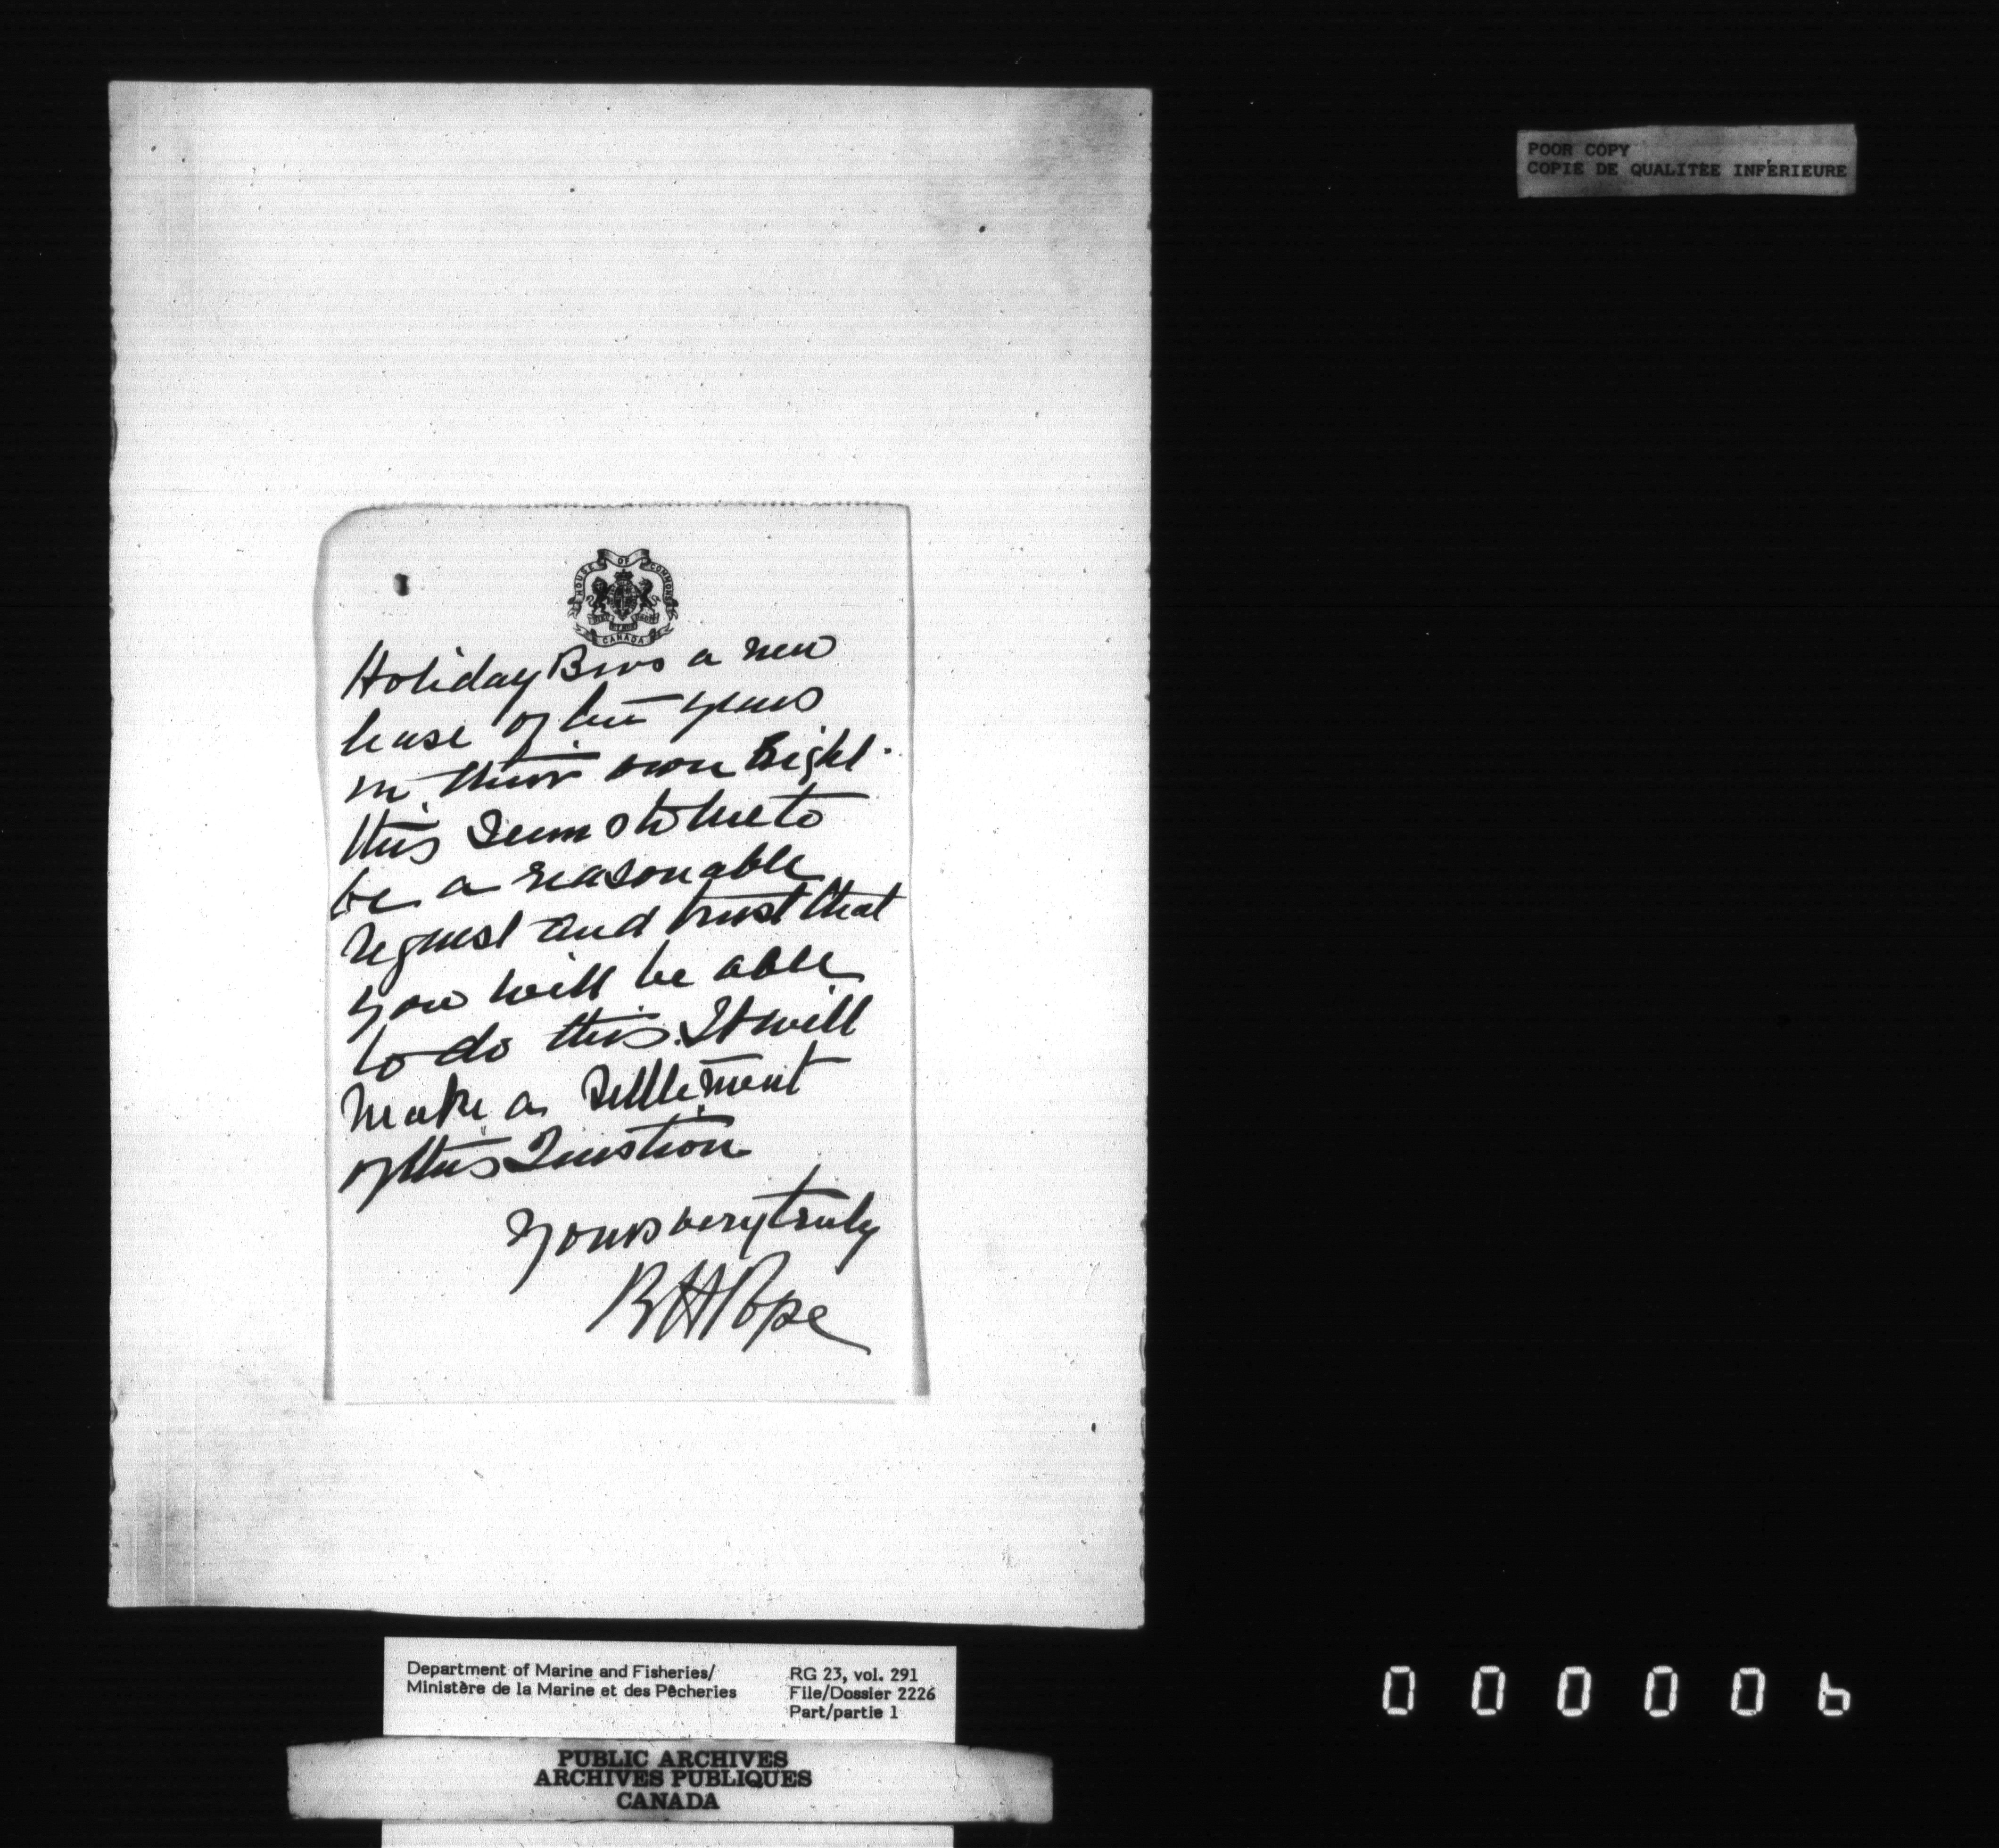 POOR COPY
COPIE DE QUALITEE INFERIEURE
HOUSE OF COMMONS
CANADA
Holiday Bros a new
lease of ten years
in their own right.
this seems to me to
be a reasonable
request and trust that
you will be able
to do this. It will
make a settlement
of this Question
Yours very truly
R H Pope
Department of Marine and Fisheries/
Ministère de la Marine et des Pêcheries
RG 23, vol. 291
File/Dossier 2226
Part/partie 1
PUBLIC ARCHIVES
ARCHIVES PUBLIQUES
CANADA
000006